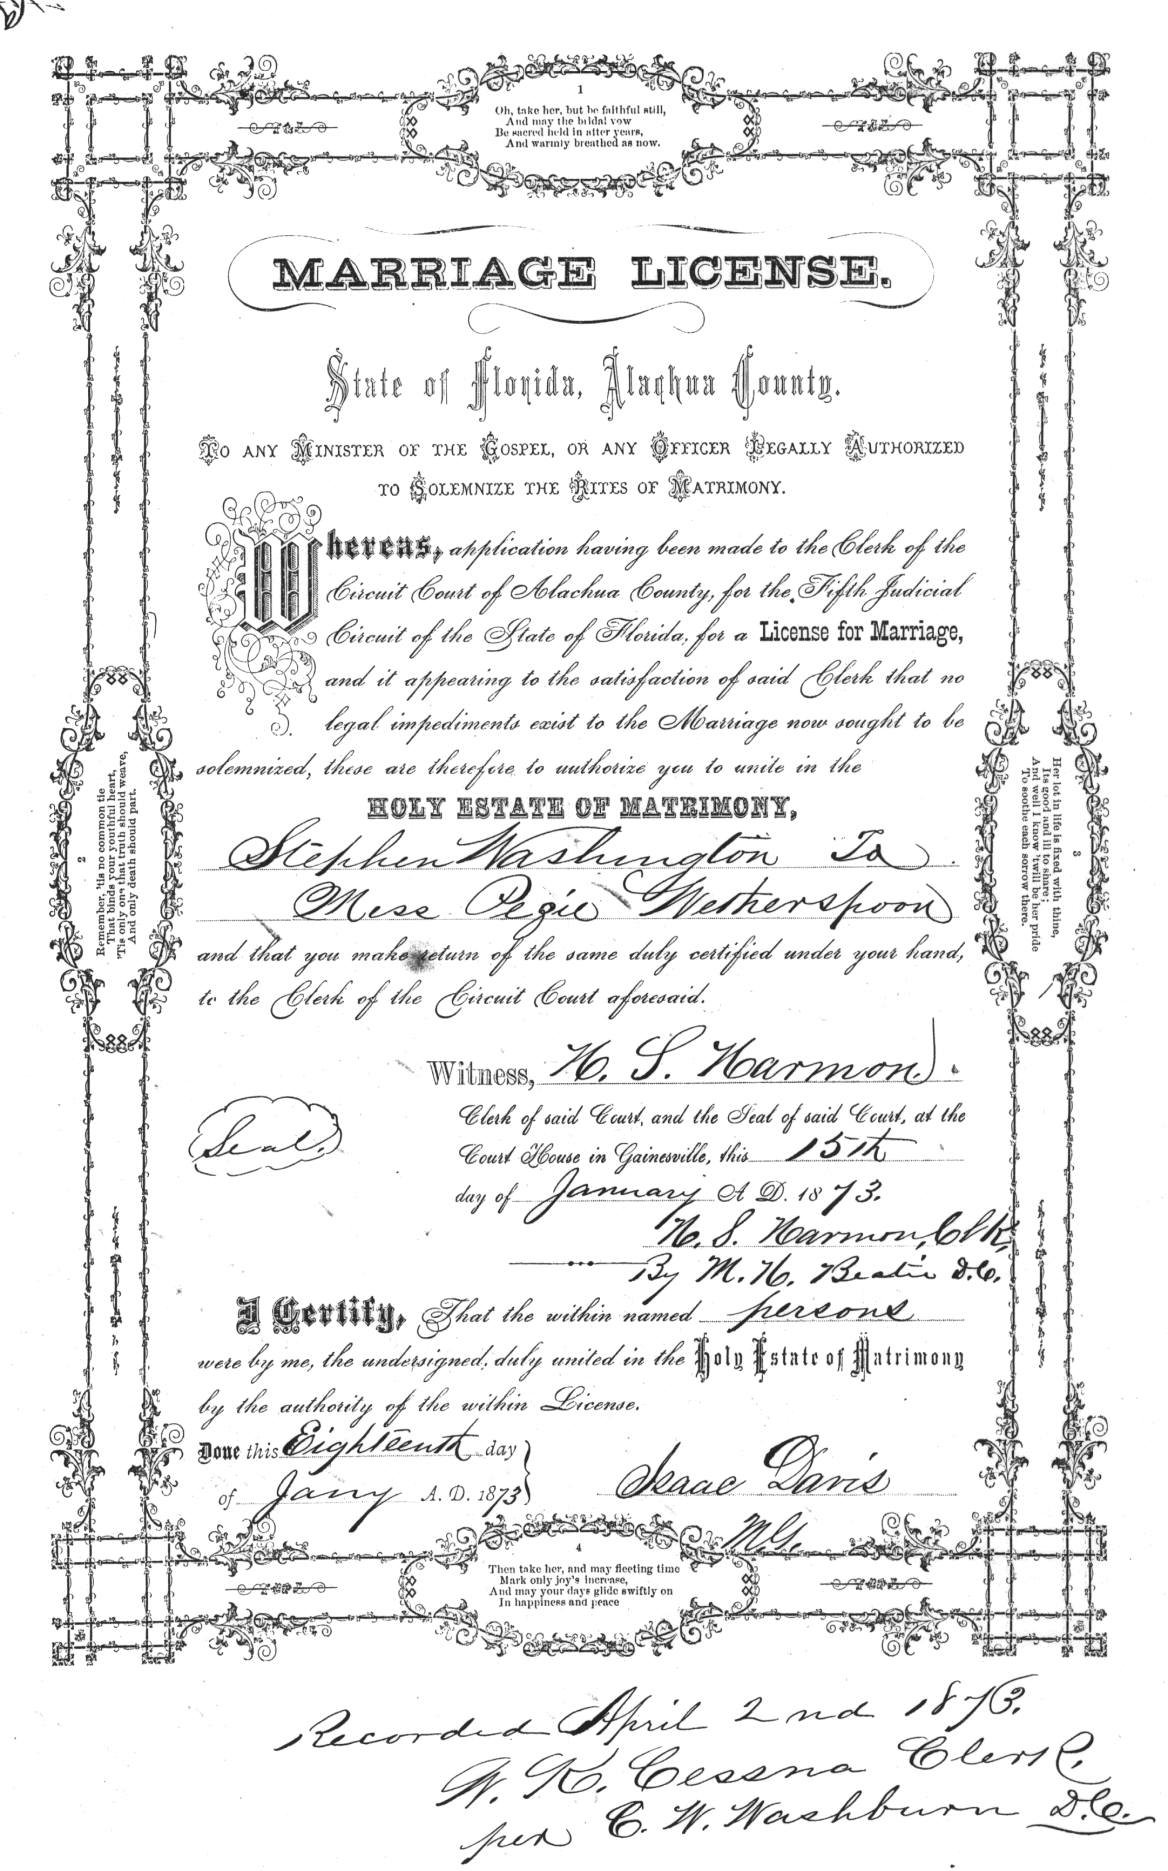 1
Oh, take her, but be faithful still,
And may the bridal vow
Be sacred held in after years,
And warmly breathed as now.
MARRIAGE LICENSE.
State of Florida, Alachua County.
TO ANY MINISTER OF THE GOSPEL, OR ANY OFFICER LEGALLY AUTHORIZED
TO SOLEMNIZE THE RITES OF MATRIMONY.
Whereas, application having been made to the Clerk of the
Circuit Court of Alachua County, for the Fifth Judicial
Circuit of the State of Florida, for a License for Marriage,
and it appearing to the satisfaction of said Clerk that no
legal impediments exist to the Marriage now sought to be
solemnized, these are therefore to authorize you to unite in the
HOLY ESTATE OF MATRIMONY,
Stephen Washington To
Miss Pegie Wetherspoon
and that you make return of the same duly certified under your hand,
to the Clerk of the Circuit Court aforesaid.
2
Remember, 'tis no common tie
That binds your youthful heart,
'Tis only one that truth should weave,
And only death should part.
3
Her lot in life is fixed with thine,
Its good and ill to share;
And well I know 'twill be her pride
To soothe each sorrow there.
Witness, H. S. Harmon.
Clerk of said Court, and the Seal of said Court, at the
Seal.
Court House in Gainesville, this 15th
day of January A D. 1873.
H. S. Harmon, Clk,
By M. H. Beatie D.C.
I Certify, That the within named persons
were by me, the undersigned, duly united in the Holy Estate of Matrimony
by the authority of the within License.
Done this Eighteenth day
of Jany A. D. 1873
Isaac Davis
M.G.
4
Then take her, and may fleeting time
Mark only joy's increase,
And may your days glide swiftly on
In happiness and peace
Recorded April 2nd 1873.
W. K. Cessna Clerk.
per C. W. Washburn D.C.